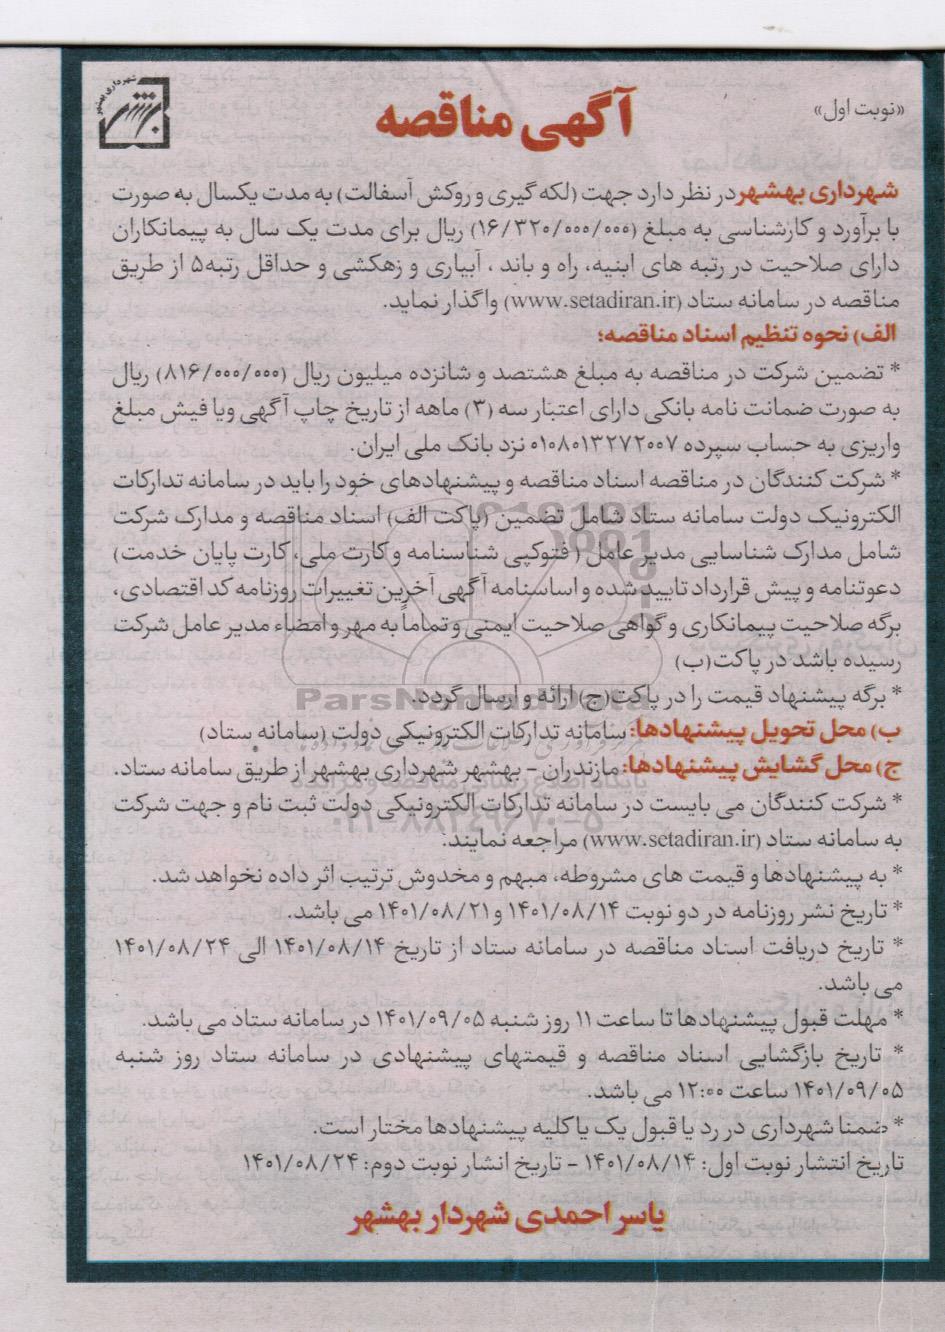 «نوبت اول»
آگهی مناقصه
شهرداری بهشهر
شهرداری بهشهر در نظر دارد جهت (لکه گیری و روکش آسفالت) به مدت یکسال به صورت
با برآورد و کارشناسی به مبلغ (۱۶/۳۲۰/۰۰۰/۰۰۰) ریال برای مدت یک سال به پیمانکاران
دارای صلاحیت در رتبه های ابنیه، راه و باند ، آبیاری و زهکشی و حداقل رتبه۵ از طریق
مناقصه در سامانه ستاد (www.setadiran.ir) واگذار نماید.
الف) نحوه تنظیم اسناد مناقصه؛
* تضمین شرکت در مناقصه به مبلغ هشتصد و شانزده میلیون ریال (۸۱۶/۰۰۰/۰۰۰) ریال
به صورت ضمانت نامه بانکی دارای اعتبار سه (۳) ماهه از تاریخ چاپ آگهی ویا فیش مبلغ
واریزی به حساب سپرده ۰۱۰۸۰۱۳۲۷۲۰۰۷ نزد بانک ملی ایران.
* شرکت کنندگان در مناقصه اسناد مناقصه و پیشنهادهای خود را باید در سامانه تدارکات
الکترونیک دولت سامانه ستاد شامل تضمین (پاکت الف) اسناد مناقصه و مدارک شرکت
شامل مدارک شناسایی مدیر عامل ( فتوکپی شناسنامه و کارت ملی، کارت پایان خدمت)
دعوتنامه و پیش قرارداد تایید شده و اساسنامه آگهی آخرین تغییرات روزنامه کد اقتصادی،
برگه صلاحیت پیمانکاری و گواهی صلاحیت ایمنی و تماماً به مهر و امضاء مدیر عامل شرکت
رسیده باشد در پاکت (ب)
* برگه پیشنهاد قیمت را در پاکت (ج) ارائه و ارسال گردد.
ParsNamadData
ب) محل تحویل پیشنهادها: سامانه تدارکات الکترونیکی دولت (سامانه ستاد)
ج) محل گشایش پیشنهادها: مازندران - بهشهر شهرداری بهشهر از طریق سامانه ستاد.
پایگاه اطلاع رسانی مناقصه و مزایده
* شرکت کنندگان می بایست در سامانه تدارکات الکترونیکی دولت ثبت نام و جهت شرکت
۰۲۱-۸۸۳۴۹۶۷۰-۵
به سامانه ستاد (www.setadiran.ir) مراجعه نمایند.
* به پیشنهادها و قیمت های مشروطه، مبهم و مخدوش ترتیب اثر داده نخواهد شد.
* تاریخ نشر روزنامه در دو نوبت ۱۴۰۱/۰۸/۱۴ و ۱۴۰۱/۰۸/۲۱ می باشد.
* تاریخ دریافت اسناد مناقصه در سامانه ستاد از تاریخ ۱۴۰۱/۰۸/۱۴ الی ۱۴۰۱/۰۸/۲۴
می باشد.
* مهلت قبول پیشنهادها تا ساعت ۱۱ روز شنبه ۱۴۰۱/۰۹/۰۵ در سامانه ستاد می باشد.
* تاریخ بازگشایی اسناد مناقصه و قیمتهای پیشنهادی در سامانه ستاد روز شنبه
۱۴۰۱/۰۹/۰۵ ساعت ۱۲:۰۰ می باشد.
* ضمنا شهرداری در رد یا قبول یک یا کلیه پیشنهادها مختار است.
تاریخ انتشار نوبت اول: ۱۴۰۱/۰۸/۱۴ - تاریخ انشار نوبت دوم: ۱۴۰۱/۰۸/۲۴
یاسر احمدی شهردار بهشهر